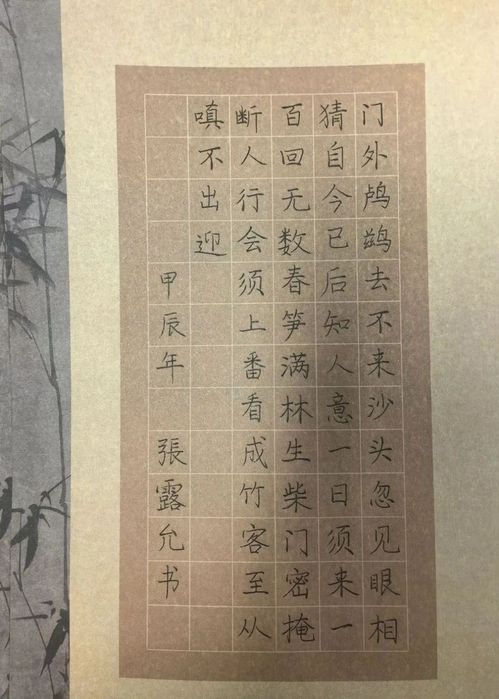 门外鸬鹚去不来沙头忽见眼相
猜自今已后知人意一日须来一
百回无数春笋满林生柴门密掩
断人行会须上番看成竹客至从
嗔不出迎
甲辰年 張露允书